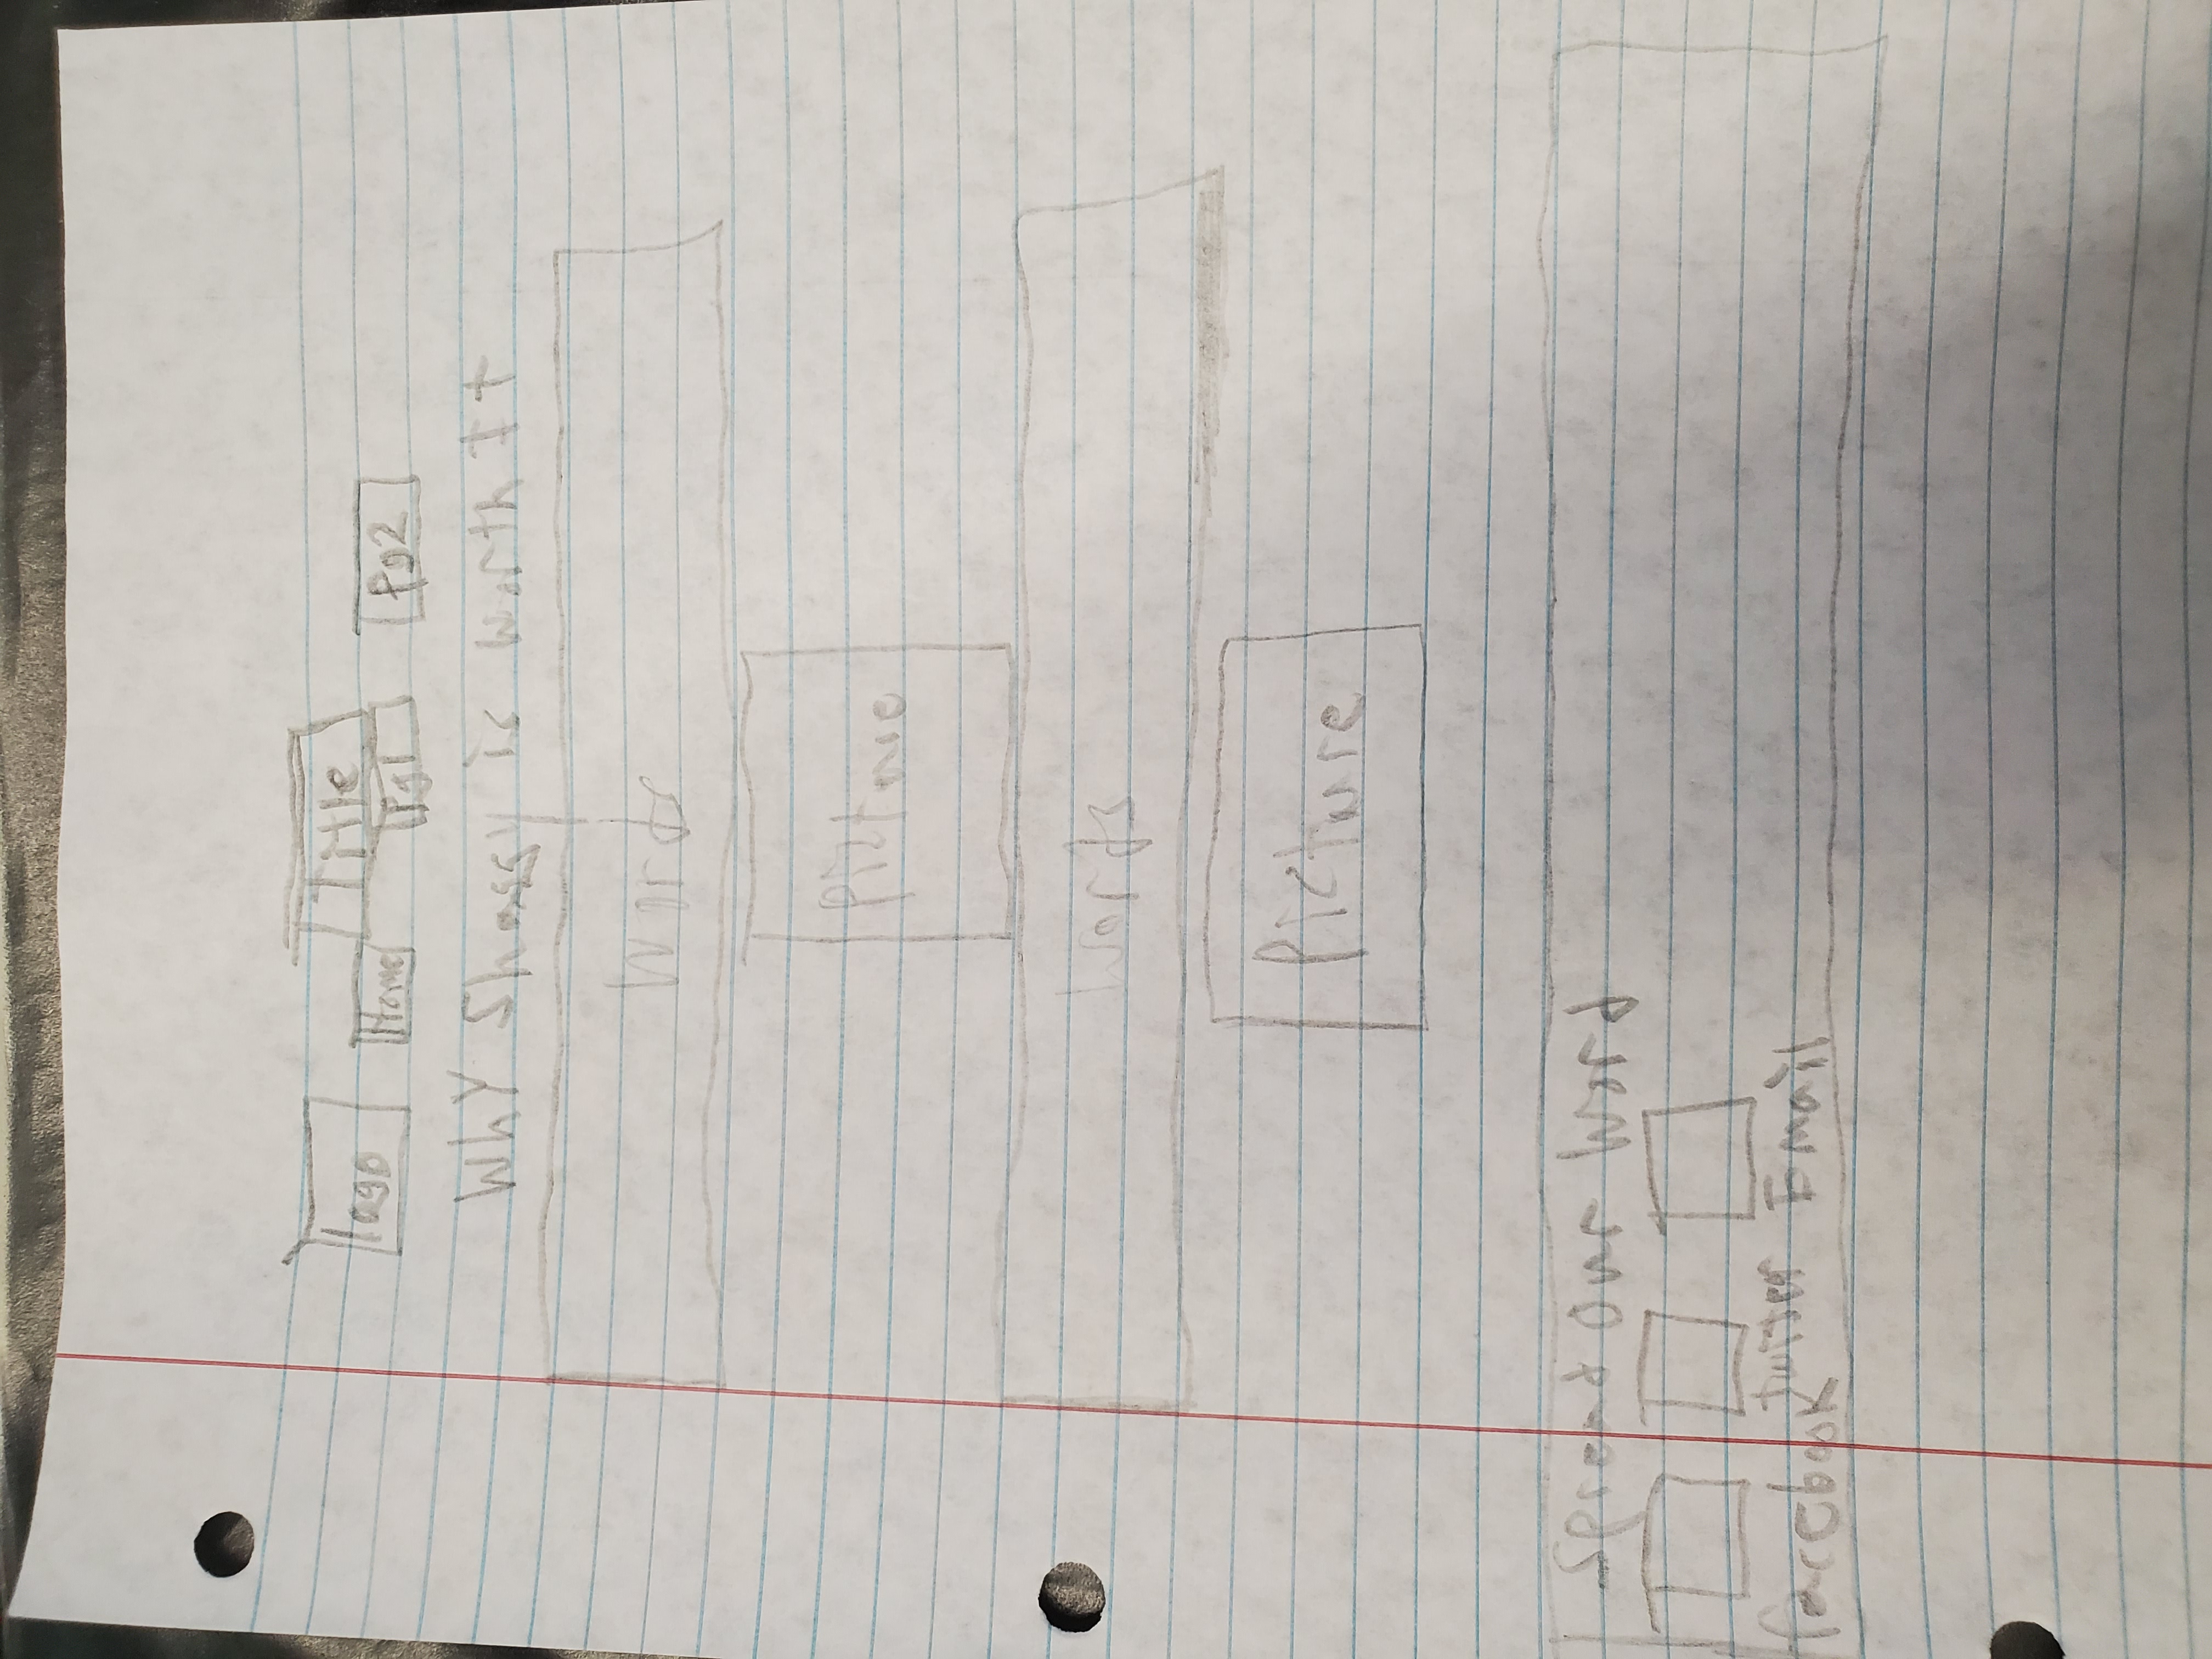 logo
Title
Home
Pg1
Pg2
WhY Shaggy is Worth It
Words
Picture
Words
Picture
Spread Our Word
facebook
twitter
Email